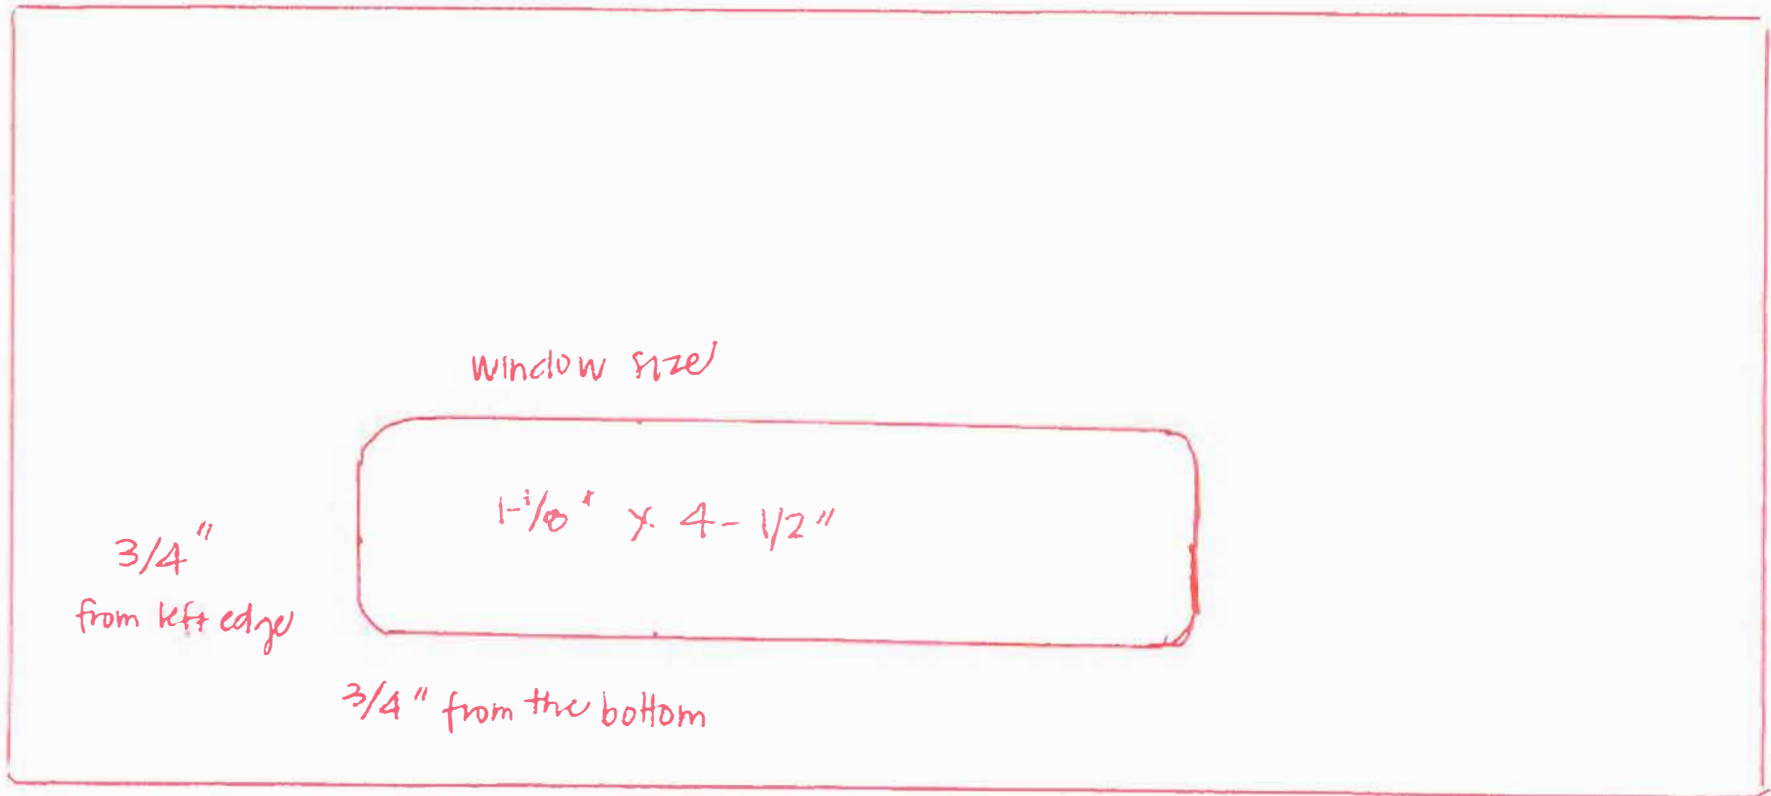 window size
1-1/8" x 4-1/2"
3/4"
from left edge
3/4" from the bottom